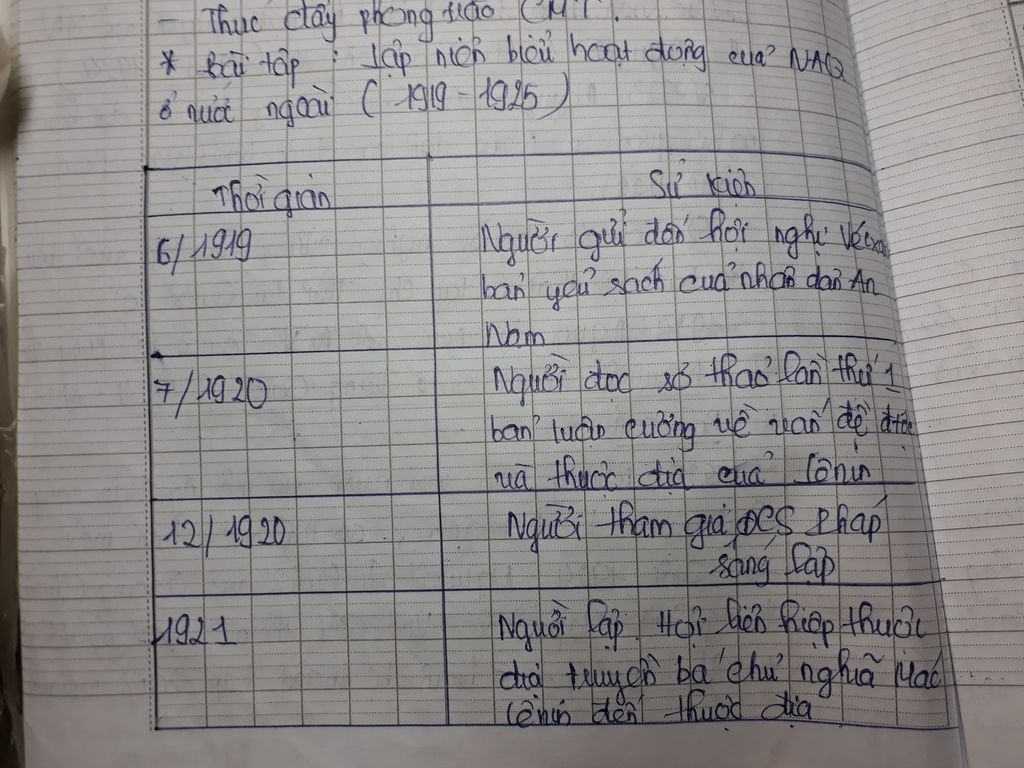 - Thúc đẩy phong trào CMVN.
* Bài tập : Lập niên biểu hoạt động của NAQ
ở nước ngoài (1919-1925)
Thời gian
Sự kiện
6/1919
Người gửi đến hội nghị Vécxai
bản yêu sách của nhân dân An
Nam
7/1920
Người đọc sơ thảo lần thứ 1
bản luận cương về vấn đề dtộc
và thuộc địa của Lênin
12/1920
Người tham gia ĐCS Pháp
sáng lập
1921
Người lập Hội liên hiệp thuộc
địa truyền bá chủ nghĩa Mác
Lênin đến thuộc địa